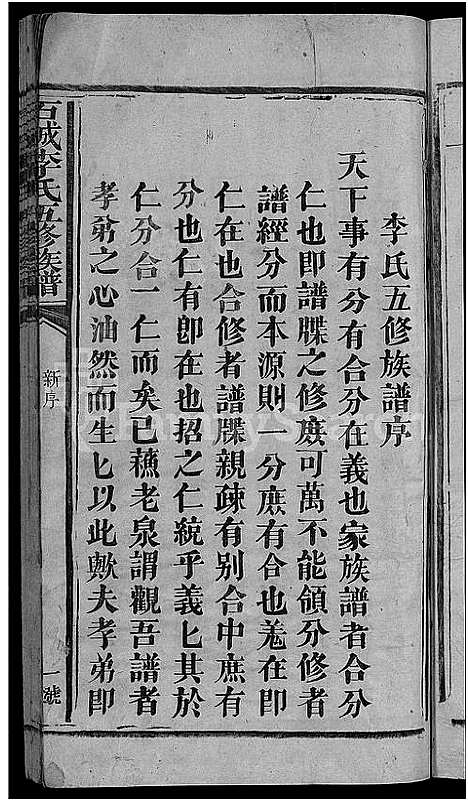 李氏五修族譜序
天下事有分有合分在義也家族譜者合分
仁也即譜牒之修庻可萬不能領分修者
譜經分而本源則一分庶有合也羗在即
仁在也合修者譜牒親疎有别合中庶有
分也仁有卽在也招之仁統乎義匕其於
仁分合一仁而矣已蘓老泉謂觀吾譜者
孝弟之心油然而生匕以此歟夫孝弟即
石城李氏五修族譜
新序
一號